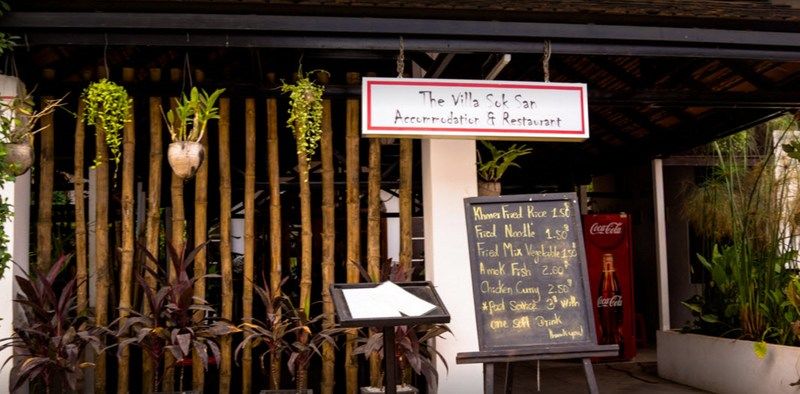 The Villa Sok San
Accommodation & Restaurant
Khmer Fried Rice 1.50$
Fried Noodle 1.50$
Fried Mix Vegetable 1.50$
Amok Fish 2.00$
Chicken Curry 2.50$
* 3$ with
one soft Drink
Thank you
Coca-Cola
Coca-Cola